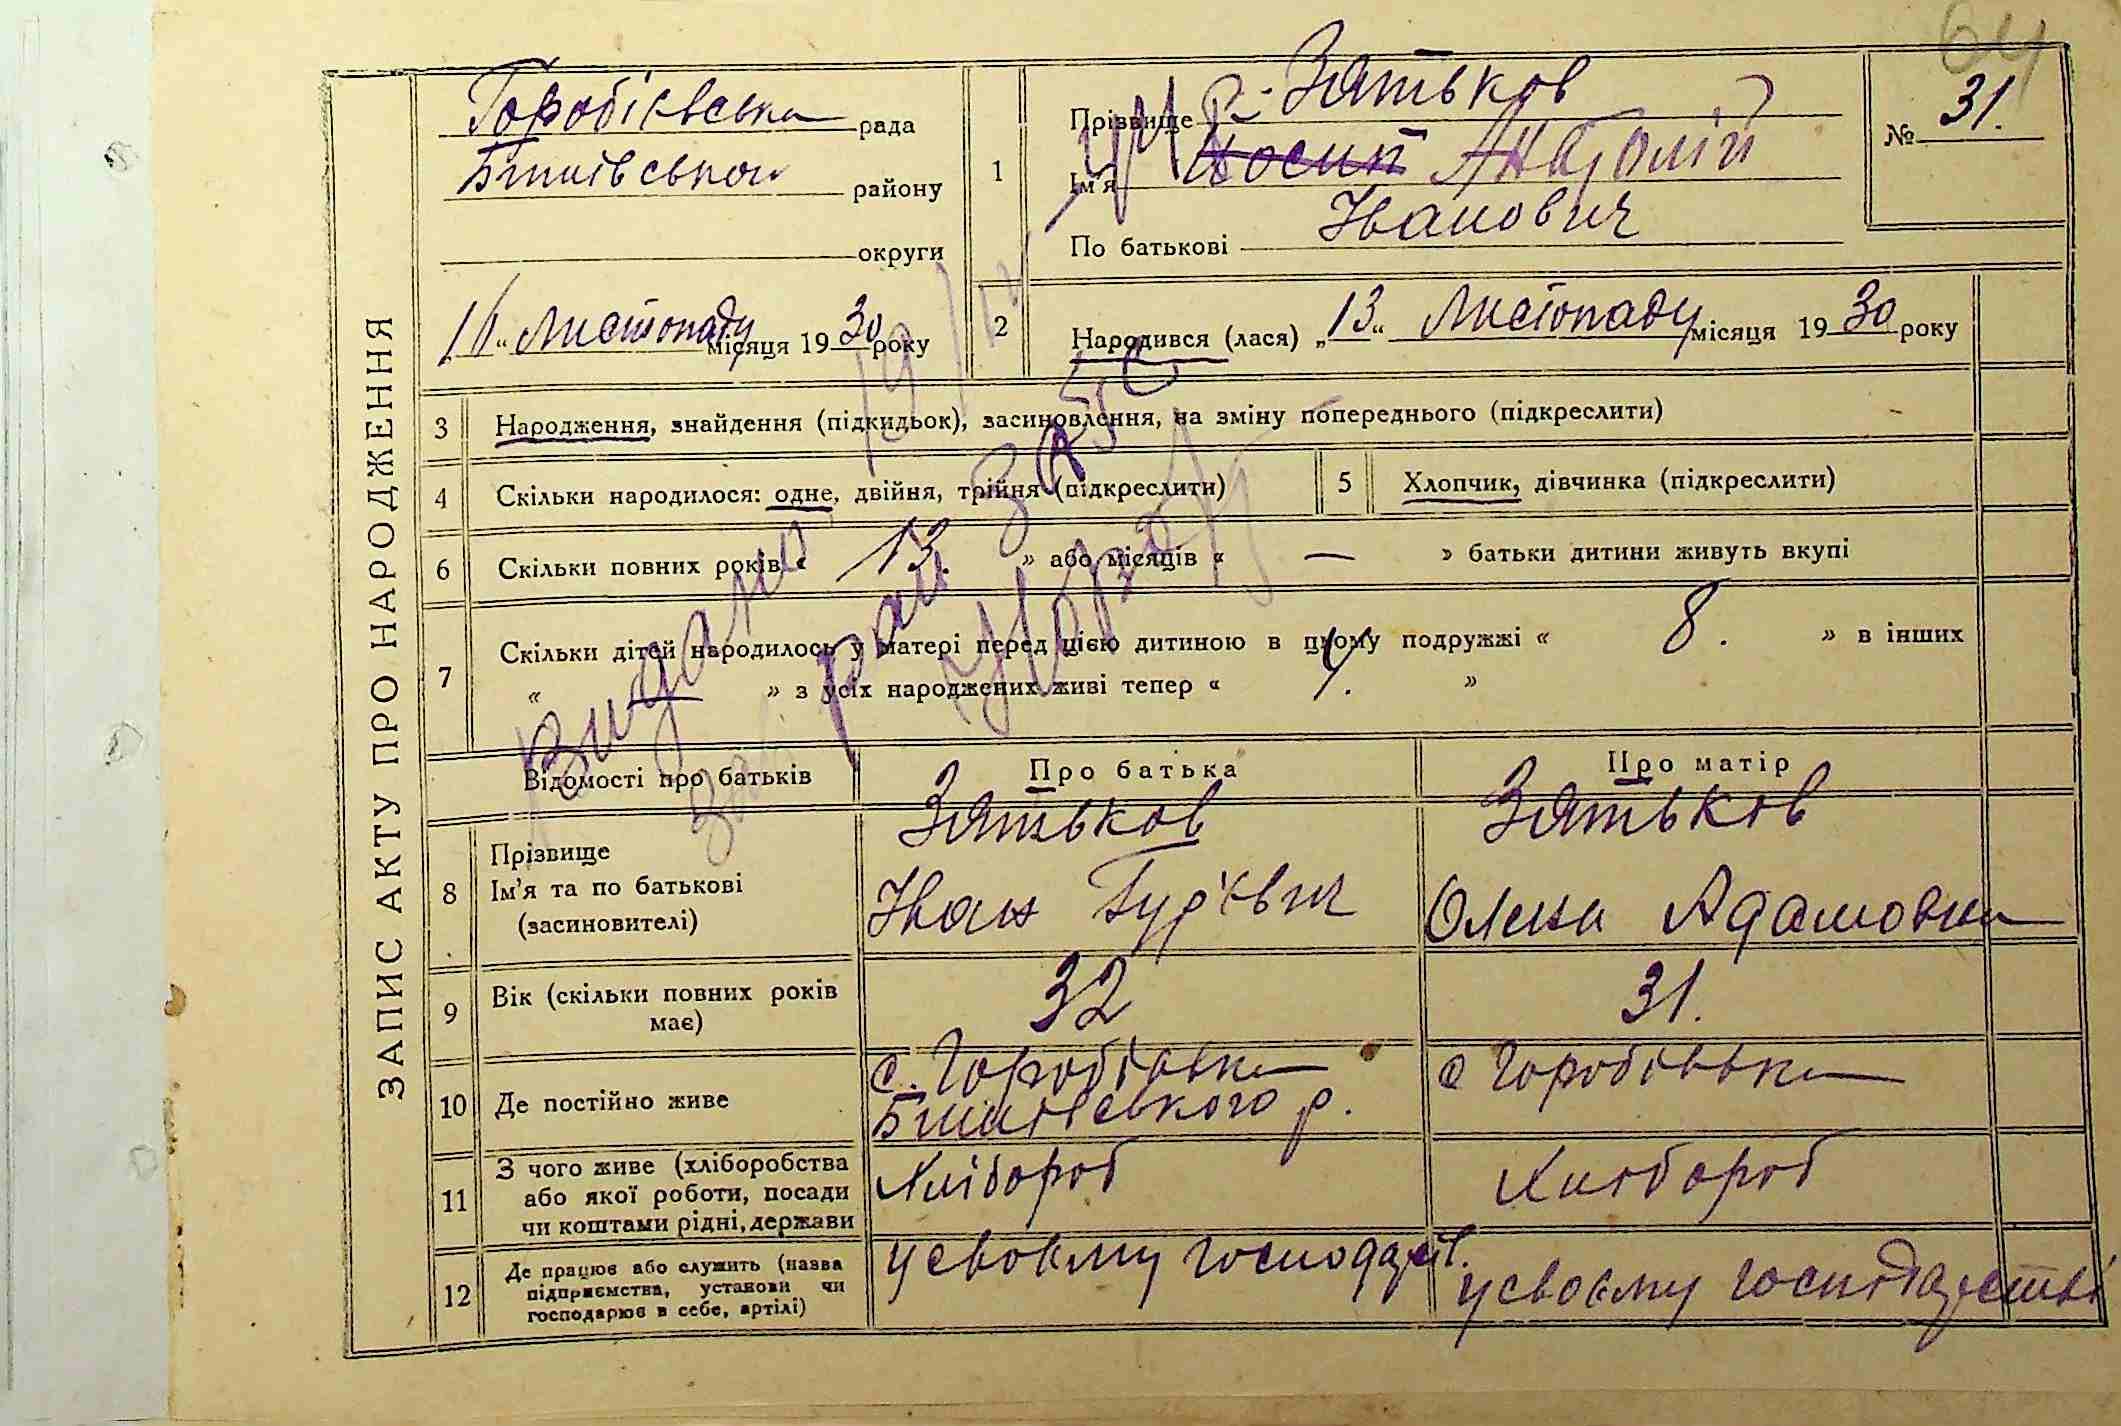 64
ЗАПИС АКТУ ПРО НАРОДЖЕННЯ
Горобієвська рада
Бишівського району
округи
16 " Листопаду місяця 1930 року
1
Прізвище Зятьков
Ім'я Йосип Анатолій
По батькові Іванович
№ 31.
2 Народився (лася) „13" Листопаду місяця 1930 року
3 Народження, знайдення (підкидьок), засиновлення, на зміну попереднього (підкреслити)
4 Скільки народилося: одне, двійня, трійня (підкреслити)
5 Хлопчик, дівчинка (підкреслити)
6 Скільки повних років « 13. » або місяців « — » батьки дитини живуть вкупі
7 Скільки дітей народилось у матері перед цією дитиною в цьому подружжі « 8. » в інших
« — » з усіх народжених живі тепер « 4. »
Видано
ЗАГС
Відомості про батьків
Про батька
Про матір
8 Прізвище
Ім'я та по батькові
(засиновителі)
Зятьков
Іван Гур'євич
Зятьков
Олена Адамовна
9 Вік (скільки повних років
має)
32
31.
10 Де постійно живе
с. Горобіївка
Бишівського р.
с Горобівка
11 З чого живе (хліборобства
або якої роботи, посади
чи коштами рідні, держави
Хлібороб
Хлібороб
12 Де працює або служить (назва
підприємства, установи чи
господарює в себе, артілі)
у своєму господарст.
у своєму господарстві